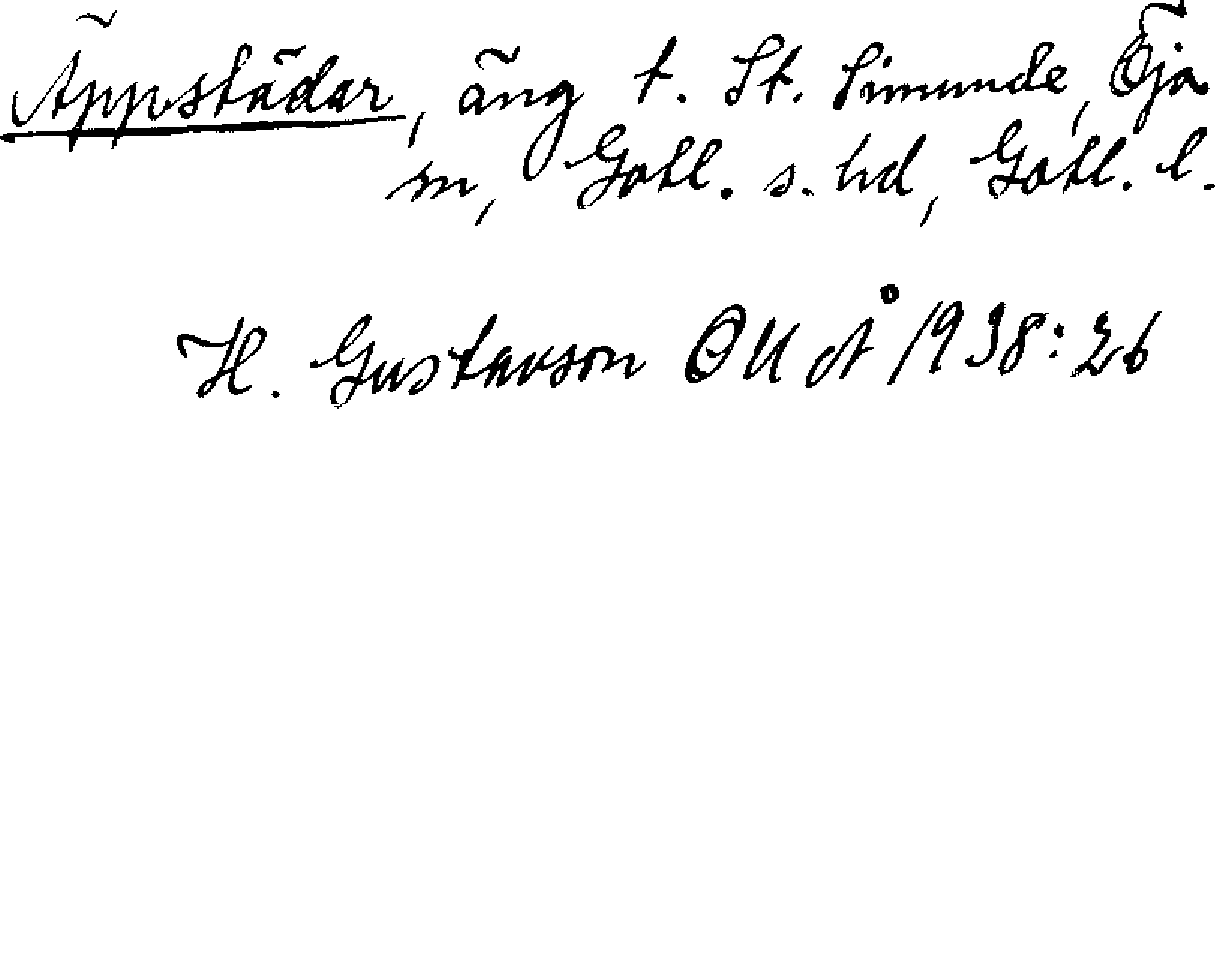 Äppstädar, äng t. St. Simunde, Öja
sn, Gotl. s. hd, Gotl. l.
H. Gustavson OUÅ 1938:26